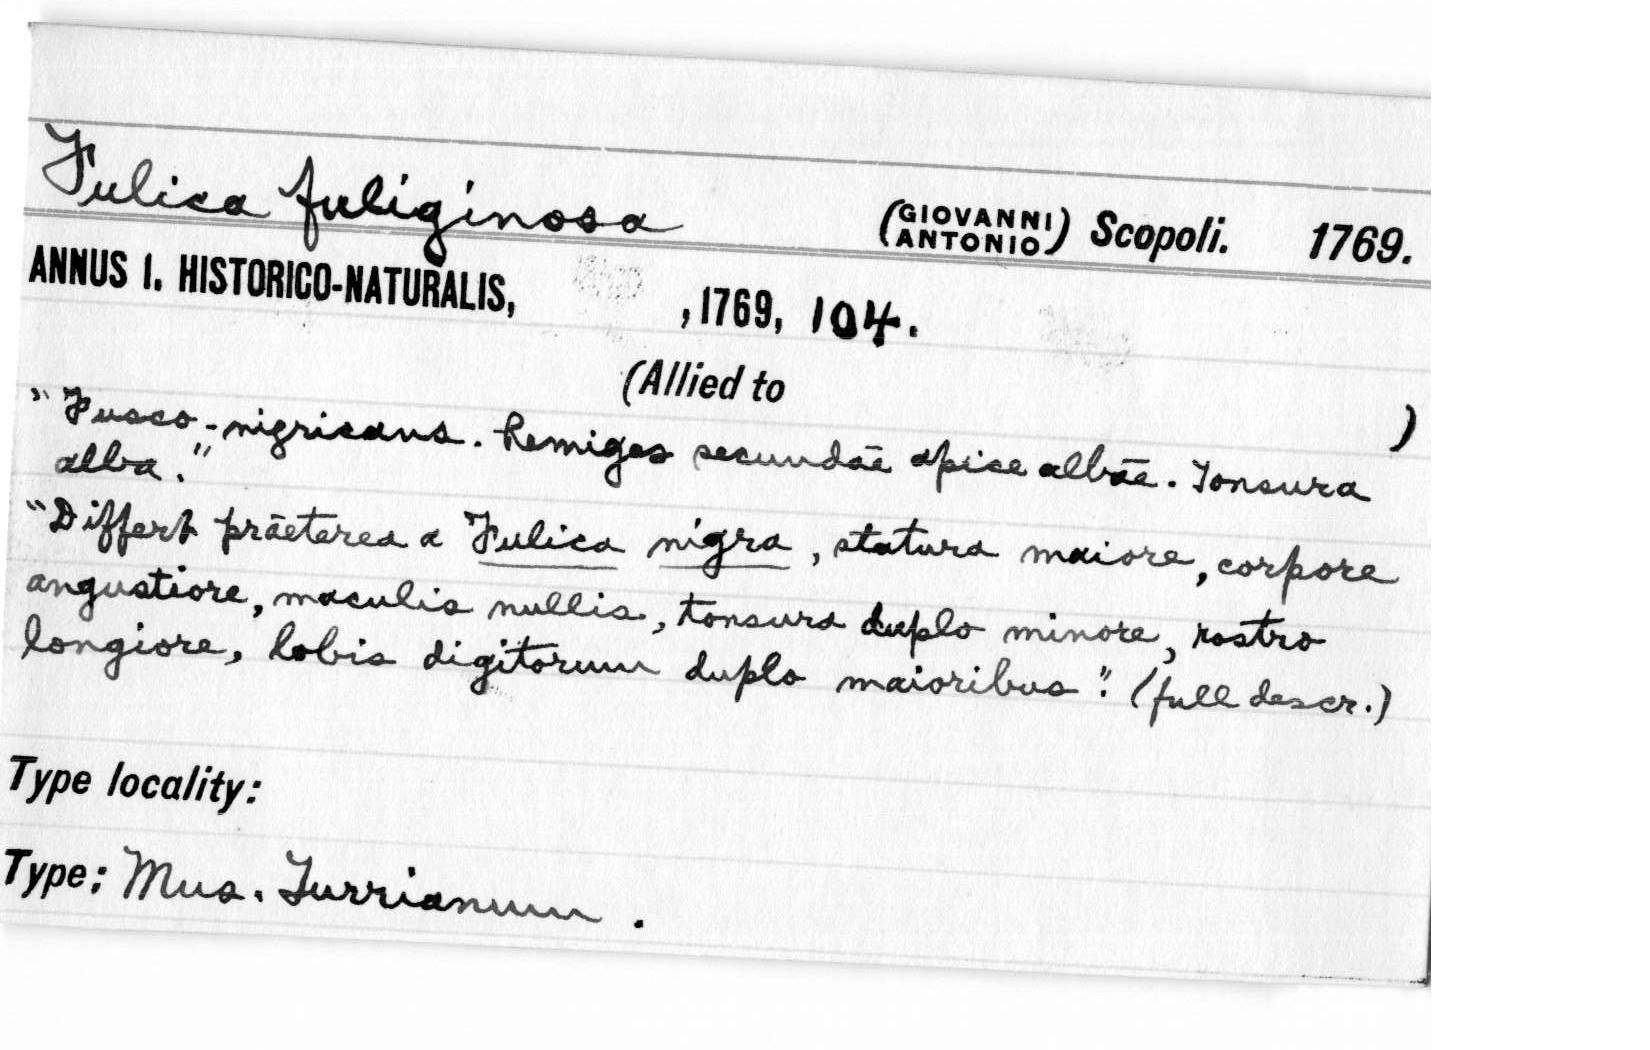 Fulica fuliginosa (GIOVANNI ANTONIO) Scopoli. 1769.
ANNUS I. HISTORICO-NATURALIS, , 1769, 104.
(Allied to )
"Fusco-nigricans. Remiges secundāe apice albāe. Tonsura
alba."
"Differt prāeterea a Fulica nigra, statura maiore, corpore
angustiore, maculis nullis, tonsura duplo minore, rostro
longiore, lobis digitorum duplo maioribus". (full descr.)
Type locality:
Type: Mus. Turrianum.